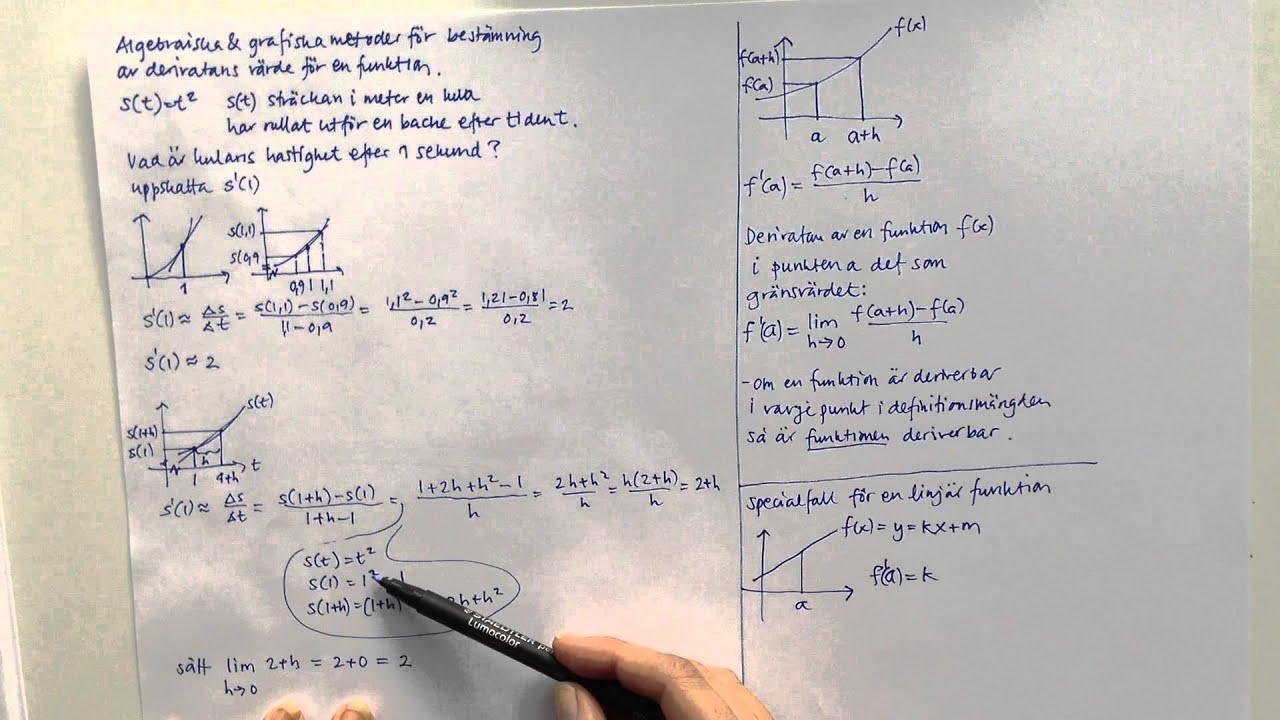 Algebraiska & grafiska metoder för bestämning
av derivatans värde för en funktion.
s(t)=t² s(t) sträckan i meter en kula
har rullat utför en backe efter tiden t.
Vad är kulans hastighet efter 1 sekund?
uppskatta s'(1)
s(1,1)
s(0,9
1
0,9 1 1,1
s'(1) ≈ Δs/Δt = (s(1,1) − s(0,9))/(1,1 − 0,9) = (1,1² − 0,9²)/0,2 = (1,21 − 0,81)/0,2 = 2
s'(1) ≈ 2
s(t)
s(1+h)
s(1)
h
1 1+h t
s'(1) ≈ Δs/Δt = (s(1+h) − s(1))/(1+h−1) = (1+2h+h²−1)/h = (2h+h²)/h = h(2+h)/h = 2+h
s(t) = t²
s(1) = 1² 1
s(1+h) = (1+h) 2h+h²
sätt lim h→0 2+h = 2+0 = 2
STAEDTLER pe
Lumocolor
f(x)
f(a+h)
f(a)
a a+h
f'(a) = (f(a+h) − f(a))/h
Derivatan av en funktion f(x)
i punkten a det som
gränsvärdet:
f'(a) = lim h→0 (f(a+h) − f(a))/h
- om en funktion är deriverbar
i varje punkt i definitionsmängden
så är funktionen deriverbar.
specialfall för en linjär funktion
f(x) = y = kx+m
f'(a) = k
a